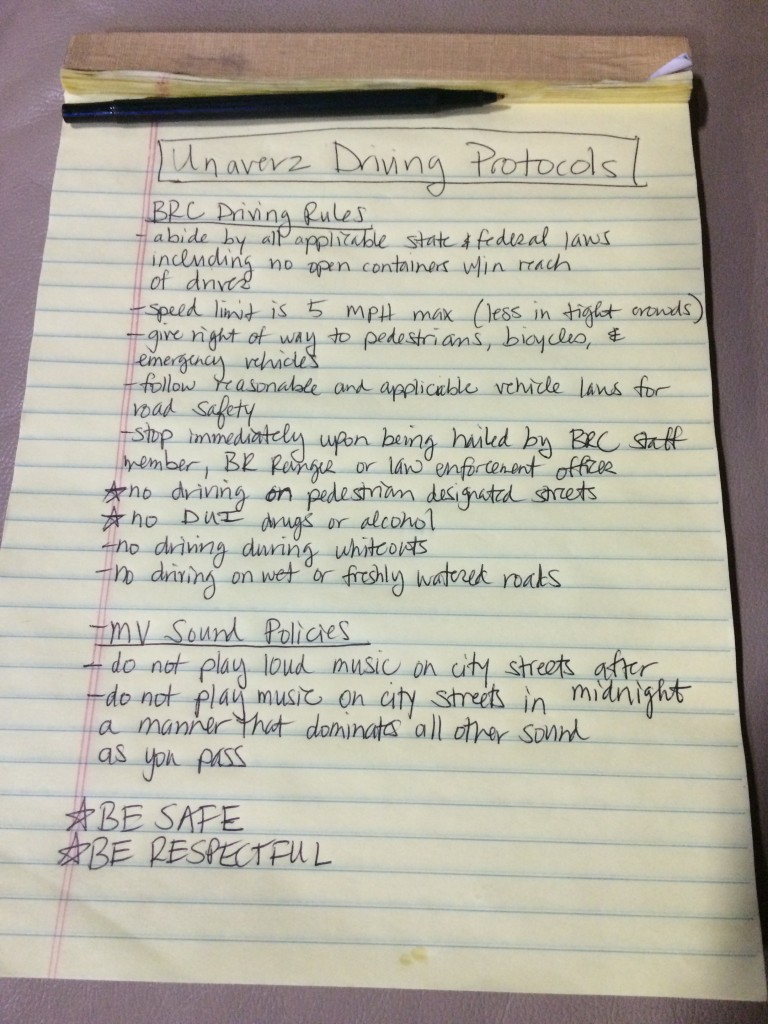 Unaverz Driving Protocols
BRC Driving Rules
- abide by all applicable state & federal laws
including no open containers w/in reach
of driver
- speed limit is 5 MPH max (less in tight crowds)
- give right of way to pedestrians, bicycles, &
emergency vehicles
- follow reasonable and applicable vehicle laws for
road safety
- stop immediately upon being hailed by BRC staff
member, BR Ranger or law enforcement officer
☆ no driving on pedestrian designated streets
☆ no DUI drugs or alcohol
- no driving during whiteouts
- no driving on wet or freshly watered roads
- MV Sound Policies
- do not play loud music on city streets after
midnight
- do not play music on city streets in
a manner that dominates all other sound
as you pass
☆ BE SAFE
☆ BE RESPECTFUL